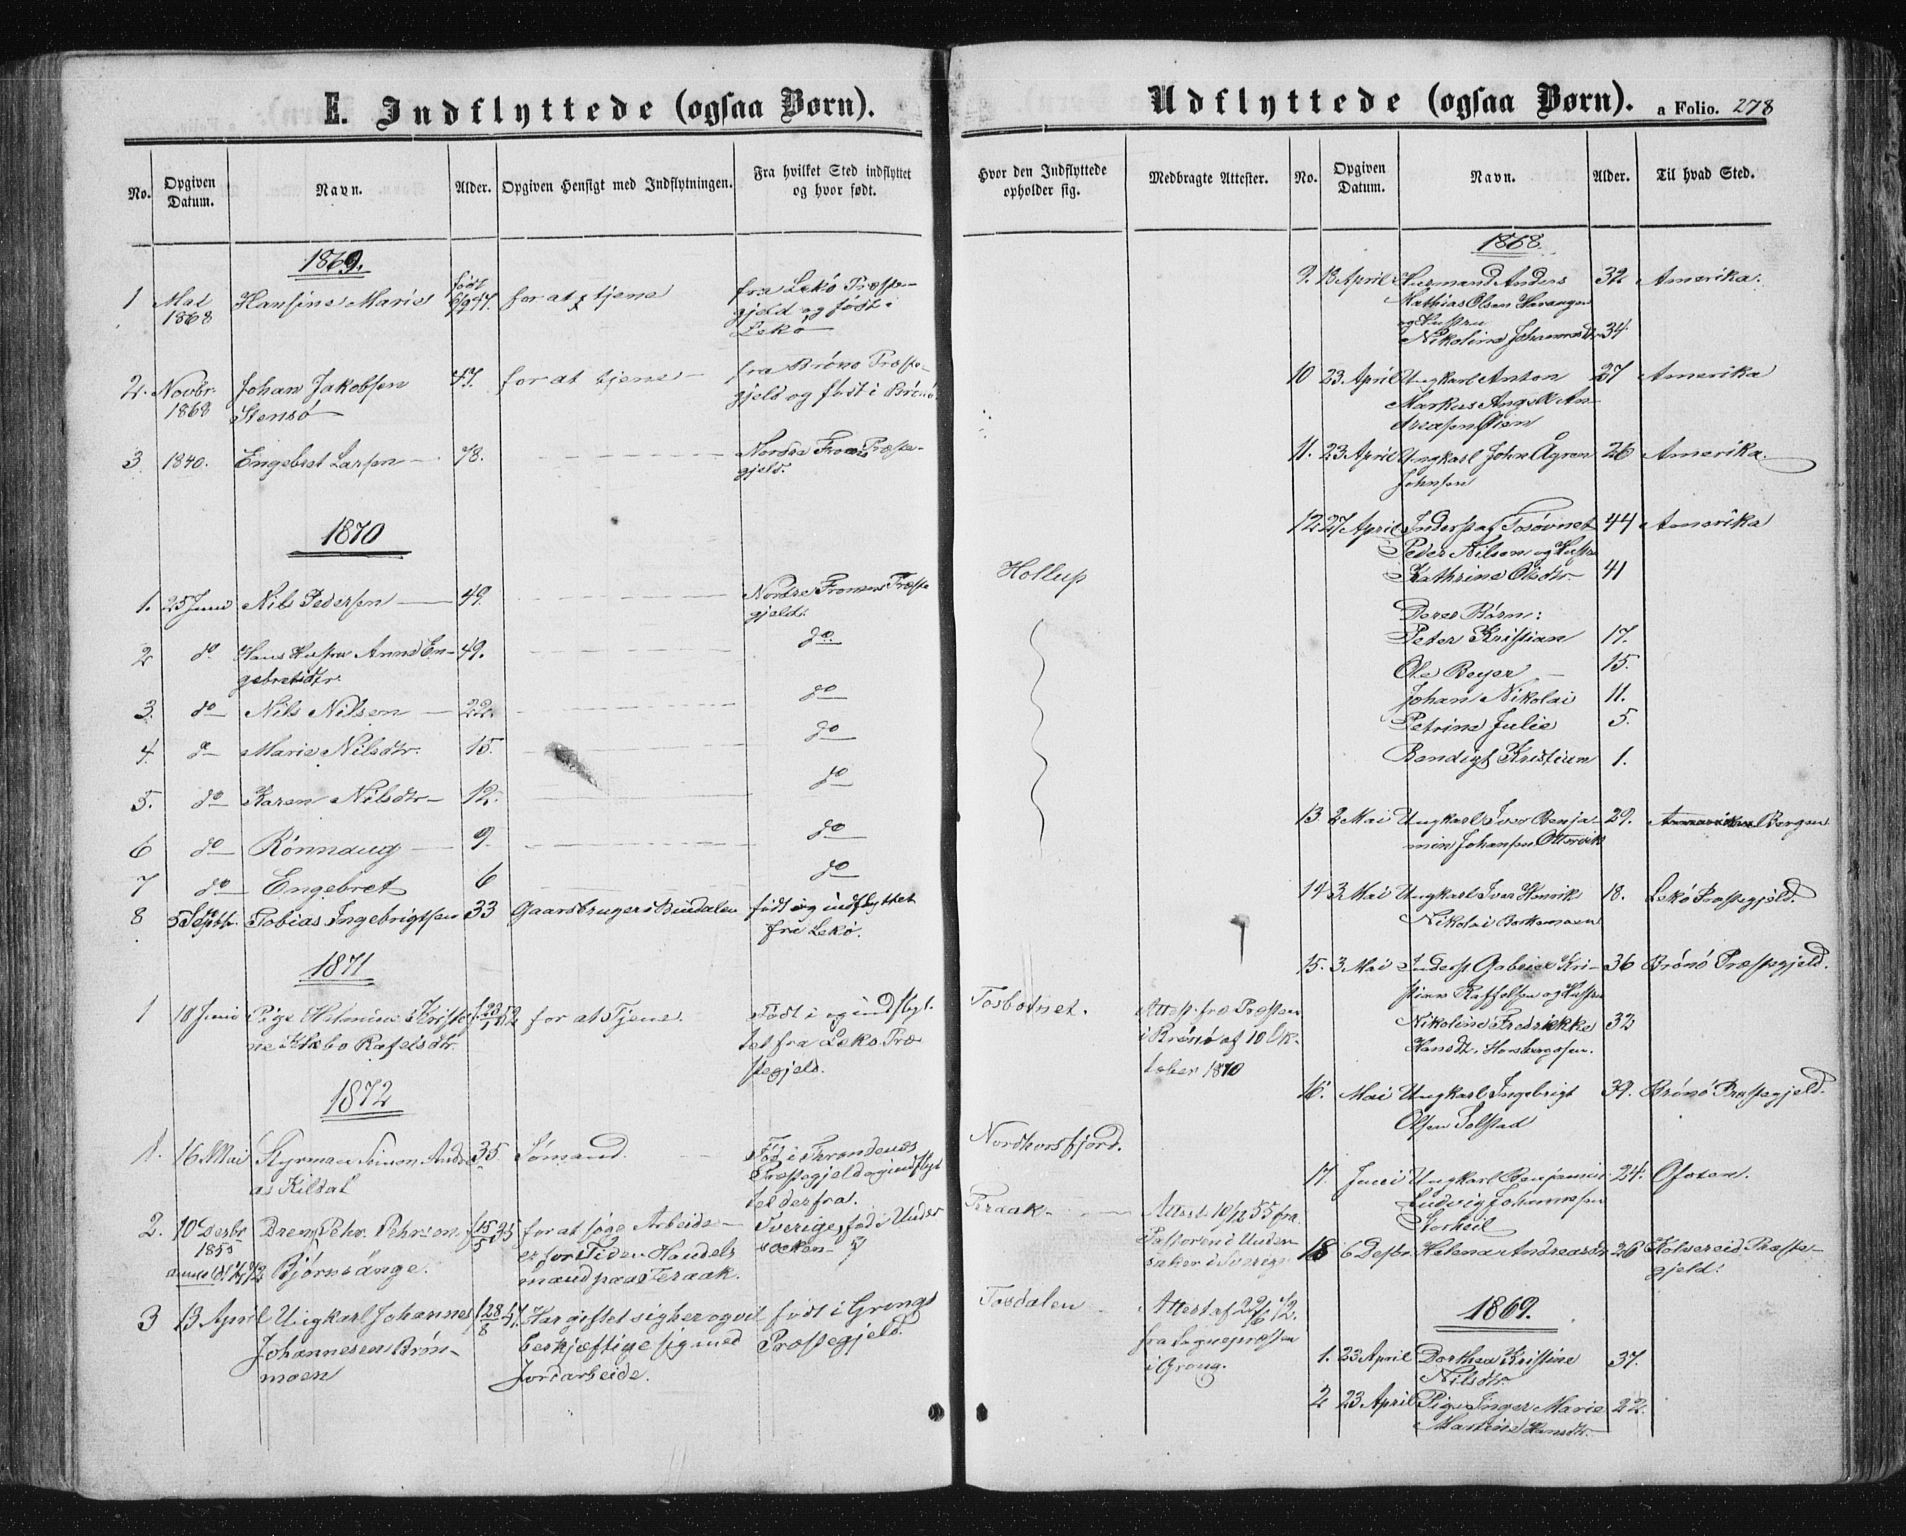 E. Indflyttede (ogsaa Børn).
No.
Opgiven Datum.
Navn.
Alder.
Opgiven Hensigt med Indflytningen.
Fra hvilket Sted indflyttet og hvor født.
1869.
1 Mai 1868 Hansine Marie født 6/9 47. for at tjene fra Lekø Præste-
gjeld og født i
Lekø
2. Novbr. 1868 Johan Jakobsen 47. for at tjene fra Brønø Præste-
Stensø gjeld og født i Brønø
3 1840. Engebret Larsen 78. Nordre Præste-
gjeld.
1870
1. 25 Juni Nils Pedersen 49. Nordre Fromens Præste
gjeld.
2 do Hans Hustru Anne En- 49. do
gebretsdtr.
3. do Nils Nilsen 22. do
4. do Marie Nilsdtr. 15. do
5. do Karen Nilsdtr 12. do
6 do Rønnaug 9. do
7 do Engebret 6 do
8 5 Septbr. Tobias Ingebrigtsen 33 Gaardbruger i Bindalen født og indflyttet
fra Lekø.
1871
1 18 Juni Pige Helmine Kristi- for at Tjene. Født i og indflyt-
ne Rafelsdtr. tet fra Lekø Præ
stegjeld.
1872
1. 16 Mai Styrman Simon Andre 35 Sømand. Fød i Throndenes
as Kildal Præstegjeld og indflyt
tet derfra.
2. 10 Desbr 1855 Dreng Pehr Pehrson f 15/5 35 for at søge Arbeide Sverige, fød i Under
Bjørnsånge. er for Tiden Handels socken
mand paa Teraak.
3 13 April Ungkarl Johannes f 28/8 47. Har giftet sig her og vil født i Grongs
Johannesen Brøn- beskjæftige sig med Præstegjeld.
moen Jordarbeide.
Udflyttede (ogsaa Børn).
a Folio. 278
Hvor den Indflyttede opholder sig.
Medbragte Attester.
No.
Opgiven Datum.
Navn.
Alder.
Til hvad Sted.
Hollup
Tosbotnet. Attest fra Præsten
i Brønø af 10 Ok-
tober 1870
Nordhorsfjord.
Teraak Attest 10/12 55 fra
Pastoren i Under-
saker i Sverige
Tosdalen Attest af 29/6 72.
fra Sognepræsten
i Grong.
1868.
9. 13 April Husmand Anders 32 Amerika.
Mathias Olsen Horangen
og Hustru
Nikoline Johannesdtr 34
10 23 April Ungkarl Anton 27 Amerika
Markus Angell An-
dreasen Øien
11. 23 April Ungkarl John Ågren 26 Amerika.
Johnsen
12. 27 April Inderst af Tosbotnet 44 Amerika
Peder Nilsen og Hustru
Kathrine Olsdtr 41
Deres Børn:
Peter Kristian 17.
Ole Beyer 15.
Johan Nikolai 11.
Petrine Julie 5.
Bendigt Kristian 1.
13 2 Mai Ungkarl Iver Benja- 29. Bergen
min Johansen Ottervik
14 3 Mai Ungkarl Iver Henrik 18. Lekø Præstegjeld.
Nikolai
15. 3 Mai Inderst Gabriel Kri- 36 Brønø Præstegjeld.
stian Raffelsen og Hustru
Nikoline Fredrikke 32
Hansdt.
16. Mai Ungkarl Ingebrigt 39. Brønø Præstegjeld.
Olsen Solstad
17. Juni Ungkarl Benjamin 24. Ofoten.
Ludvig Johannesen
Storheil
18 6 Desbr. Helena Andreasdr 26 Kolvereid Præste-
gjeld.
1869.
1. 23 April Dorthea Kristine 37.
Nilsdtr.
2 23 April Pige Inger Marie 22.
Martine Hansdtr.